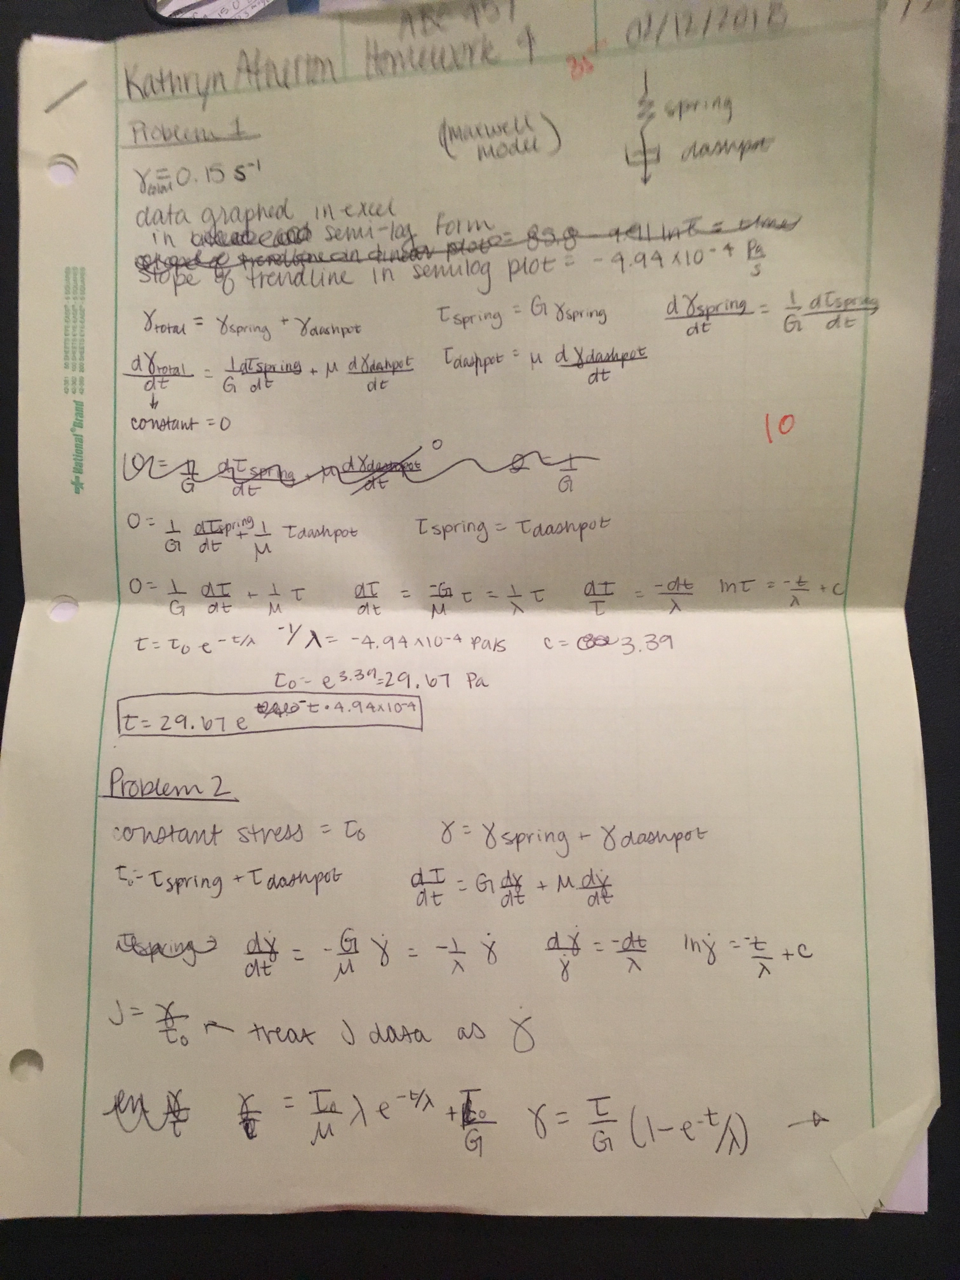 ABE 457
Kathryn Atherton Homework 4 02/12/2018
85
Problem 1 (Maxwell Model) spring
dashpot
γtotal = 0.15 s⁻¹
data graphed in excel
in semi-log form
slope of trendline in semilog plot = -4.94x10⁻⁴ Pa/s
γtotal = γspring + γdashpot τspring = G γspring dγspring/dt = 1/G dτspring/dt
dγtotal/dt = 1/G dτspring/dt + μ dγdashpot/dt τdashpot = μ dγdashpot/dt
↓
constant = 0
10
0 = 1/G dτspring/dt + 1/μ τdashpot τspring = τdashpot
0 = 1/G dτ/dt + 1/μ τ dτ/dt = -G/μ τ = 1/λ τ dτ/τ = -dt/λ ln τ = -t/λ + c
τ = τ₀ e^(-t/λ) -1/λ = -4.94x10⁻⁴ Pa/s c = 3.39
τ₀ = e^3.39 = 29.67 Pa
τ = 29.67 e^(-t·4.94x10⁻⁴)
Problem 2
constant stress = τ₀ γ = γspring = γdashpot
τ₀ = τspring + τdashpot dτ/dt = G dγ/dt + μ dγ̇/dt
dγ̇/dt = -G/μ γ̇ = -1/λ γ̇ dγ̇/γ̇ = -dt/λ ln γ̇ = -t/λ + c
J = γ/τ₀ ← treat J data as γ̇
= τ₀/μ λ e^(-t/λ) + τ₀/G γ = τ/G (1-e^(-t/λ)) →
National Brand